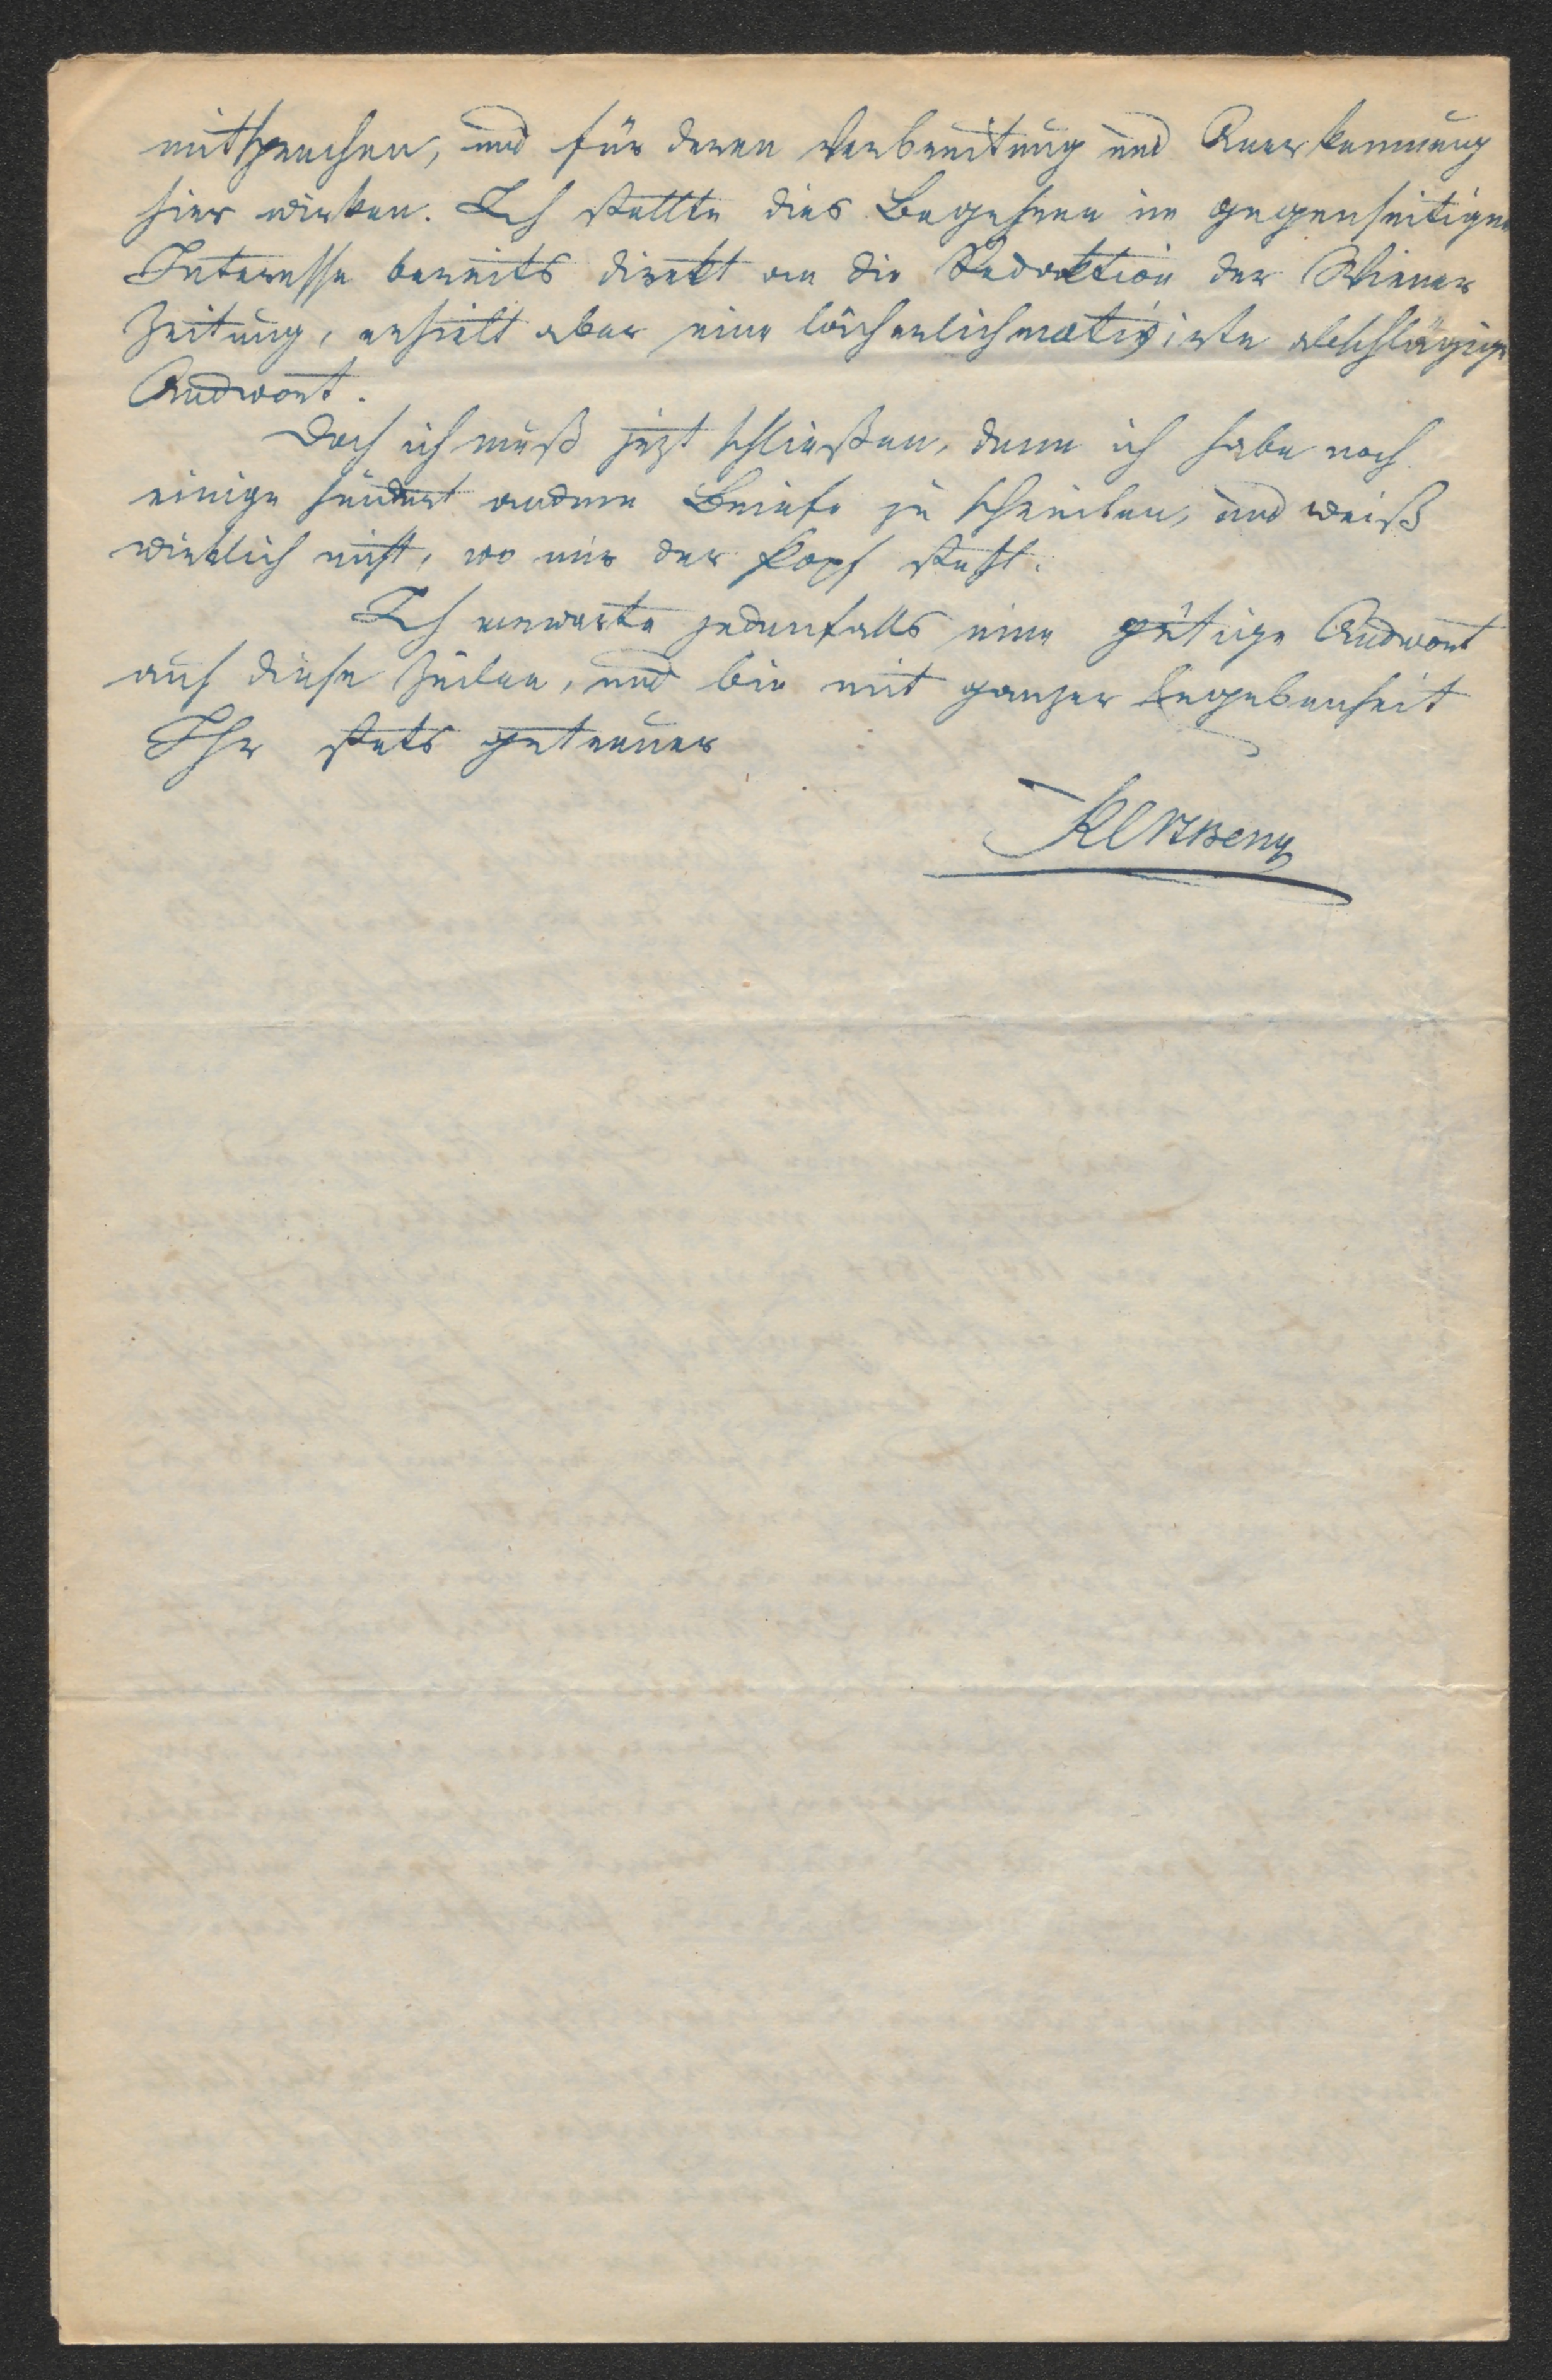 mitsprechen, und für deren Verbreitung und Anerkennung
hier wirken. Ich stellte dies Begehren im gegenseitigen
Interesse bereits direkt an die Redaktion der Wiener
Zeitung, erhielt aber eine lächerlich motivirte abschlägige
Andwort.
Doch ich muß jezt schließen, denn ich habe noch
einige hundert andere Briefe zu schreiben, und weiß
wirklich nicht, wo mir der Kopf steht.
Ich erwarte jedenfalls eine gütige Andwort
auf diese Zeilen, und bin mit ganzer Ergebenheit
Ihr stets getreuer
Kertbeny